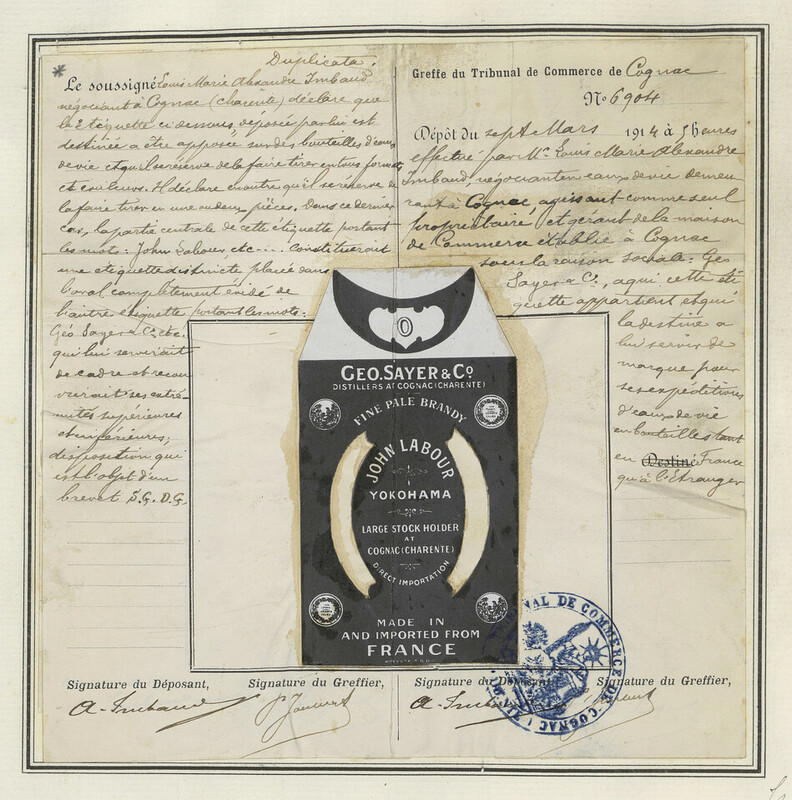 Duplicata.
* Le soussigné Louis Marie Alexandre Imbaud
négociant à Cognac (charente) déclare que
la Etiquette ci dessous, déposée par lui est
destinée a être apposée sur des bouteilles d'eaux
de vie et qu'il se réserve de la faire tirer en tous formats
et couleurs. Il déclare en outre qu'il se reserve de
la faire tirer en une ou deux pièces. Dans ce dernier
cas, la partie centrale de cette étiquette portant
les mots: John Labour, etc constituerait
une etiquette distincte placée dans
l'oval complètement évidé de
l'autre etiquette portant les mots:
Géo Sayer & Co. etc.
qui lui servirait
de cadre et recou
vrirait ses extré-
mités supérieures
et inférieures;
disposition qui
est l'objet d'un
brevet S. G. D. G.
Greffe du Tribunal de Commerce de Cognac
No 6904
Dépôt du sept Mars 1914 à 5 heures
effectué par Mr. Louis Marie Alexandre
Imbaud, négociant en eaux de vie demeu
rant à Cognac, agissant comme seul
propriétaire et gérant de la maison
de Commerce établie à Cognac
sous la raison sociale: Geo
Sayer & Co., a qui cette éti
quette appartient et qui
la destine a
lui servir de
marque pour
ses expéditions
d'eaux de vie
en bouteilles tant
en Destiné France
qu'à l'Etranger
GEO. SAYER & Co.
DISTILLERS AT COGNAC (CHARENTE)
FINE PALE BRANDY
JOHN LABOUR
YOKOHAMA
LARGE STOCK HOLDER
AT
COGNAC (CHARENTE)
DIRECT IMPORTATION
MADE IN
AND IMPORTED FROM
FRANCE
TRIBUNAL DE COMMERCE DE COGNAC
Signature du Déposant, Signature du Greffier,
A. Imbaud
Signature du Déposant, Signature du Greffier,
A. Imbaud